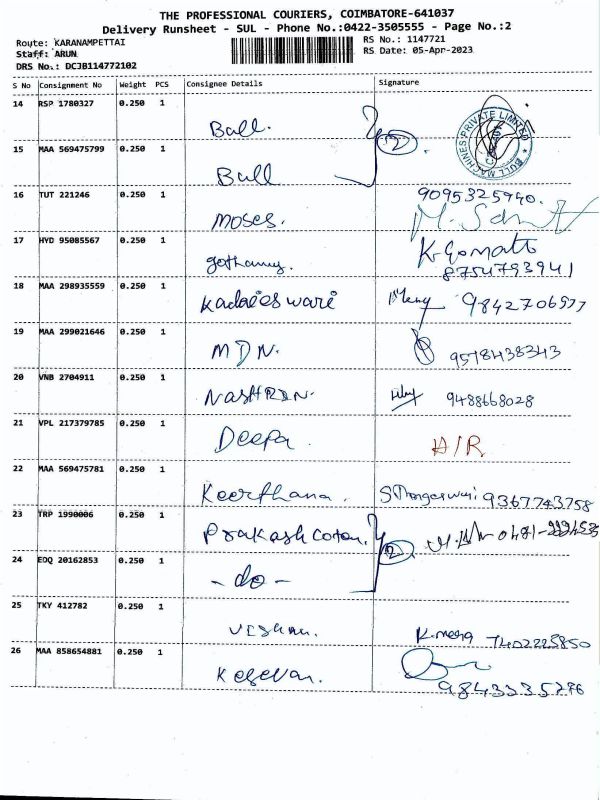 THE PROFESSIONAL COURIERS, COIMBATORE-641037
Delivery Runsheet - SUL - Phone No.:0422-3505555 - Page No.:2
Route: KARANAMPETTAI RS No.: 1147721
Staff: ARUN RS Date: 05-Apr-2023
DRS No.: DCJB114772102
S No Consignment No Weight PCS Consignee Details Signature
14 RSP 1780327 0.250 1 Bull.
BULL MACHINES PRIVATE LIMITED
15 MAA 569475799 0.250 1 Bull 2
16 TUT 221246 0.250 1 moses. 9095325940.
17 HYD 95085567 0.250 1 K. Gomathi
8754793941
18 MAA 298935559 0.250 1 Kadaieswari 9842706577
19 MAA 299021646 0.250 1 MDN. 9578438343
20 VNB 2704911 0.250 1 9488668028
21 VPL 217379785 0.250 1 Deepa. A/R
22 MAA 569475781 0.250 1 Keerthana. 9367743758
23 TRP 1990006 0.250 1 Prakash Coton. 2
24 EDQ 20162853 0.250 1 - do -
25 TKY 412782 0.250 1 K. meena
26 MAA 858654881 0.250 1 Kesevan.
9843335276